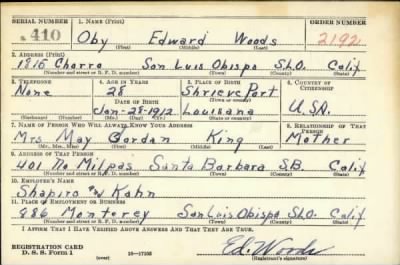 SERIAL NUMBER 1. NAME (Print) ORDER NUMBER
410 Oby Edward Woods 2192
(First) (Middle) (Last)
2. ADDRESS (Print)
1816 Chorro San Luis Obispo S.L.O. Calif
(Number and street or R. F. D. number) (Town) (County) (State)
3. TELEPHONE 4. AGE IN YEARS 5. PLACE OF BIRTH 6. COUNTRY OF CITIZENSHIP
None 28 Shrieve Port
DATE OF BIRTH (Town or county)
Jan-28-1912 Louisiana U.S.A.
(Exchange) (Number) (Mo.) (Day) (Yr.) (State or country)
7. NAME OF PERSON WHO WILL ALWAYS KNOW YOUR ADDRESS 8. RELATIONSHIP OF THAT PERSON
Mrs May Gordan King Mother
(Mr., Mrs., Miss) (First) (Middle) (Last)
9. ADDRESS OF THAT PERSON
401 No Milpas Santa Barbara S.B. Calif
(Number and street or R. F. D. number) (Town) (County) (State)
10. EMPLOYER'S NAME
Shapiro Kahn
11. PLACE OF EMPLOYMENT OR BUSINESS
886 Monterey San Luis Obispo S.L.O. Calif
(Number and street or R. F. D. number) (Town) (County) (State)
I AFFIRM THAT I HAVE VERIFIED ABOVE ANSWERS AND THAT THEY ARE TRUE.
REGISTRATION CARD
D. S. S. Form 1 (over) 16—17105 Ed. Woods
(Registrant's signature)